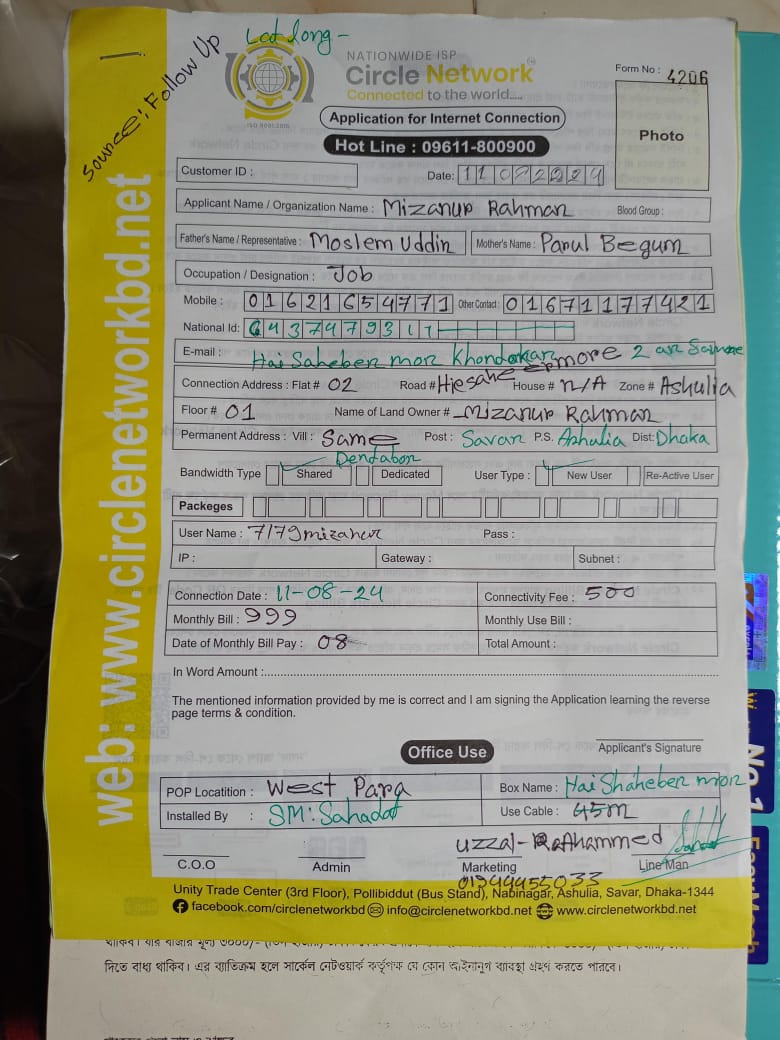 Source: Follow Up
Lat long -
NATIONWIDE ISP
Circle Network
Connected to the world.....
ISO 9001:2015
Form No : 4206
Application for Internet Connection
Hot Line : 09611-800900
Photo
Customer ID :
Date: 11082024
Applicant Name / Organization Name : Mizanur Rahman Blood Group :
Father's Name / Representative : Moslem Uddin Mother's Name : Parul Begum
Occupation / Designation : Job
Mobile : 01621654771 Other Contact : 01671177421
National Id: 6437479311
E-mail :
Hai Saheber mor Khondokar more 2 ar Samne
Connection Address : Flat # 02 Road # Hjesaheermore House # N/A Zone # Ashulia
Floor # 01 Name of Land Owner # Mizanur Rahman
Permanent Address : Vill : Same Post : Savar P.S. Ashulia Dist: Dhaka
Dendabor
Bandwidth Type Shared Dedicated User Type : New User Re-Active User
Packeges
User Name : 7179mizanur Pass :
IP : Gateway : Subnet :
Connection Date : 11-08-24 Connectivity Fee : 500
Monthly Bill : 999 Monthly Use Bill :
Date of Monthly Bill Pay : 08 Total Amount :
In Word Amount :
The mentioned information provided by me is correct and I am signing the Application learning the reverse
page terms & condition.
Applicant's Signature
Office Use
POP Locatition : West Para Box Name : Hai Shaheber mor
Installed By : SM: Sahadat Use Cable : 45m
Uzzal- Ahammed
C.O.O Admin Marketing Line Man
Unity Trade Center (3rd Floor), Pollibiddut (Bus Stand), Nabinagar, Ashulia, Savar, Dhaka-1344
facebook.com/circlenetworkbd info@circlenetworkbd.net www.circlenetworkbd.net
web: www.circlenetworkbd.net
দিতে বাধ্য থাকিব। এর ব্যতিক্রম হলে সার্কেল নেটওয়ার্ক কর্তৃপক্ষ যে কোন আইনানুগ ব্যবস্থা গ্রহণ করতে পারবে।
No.1